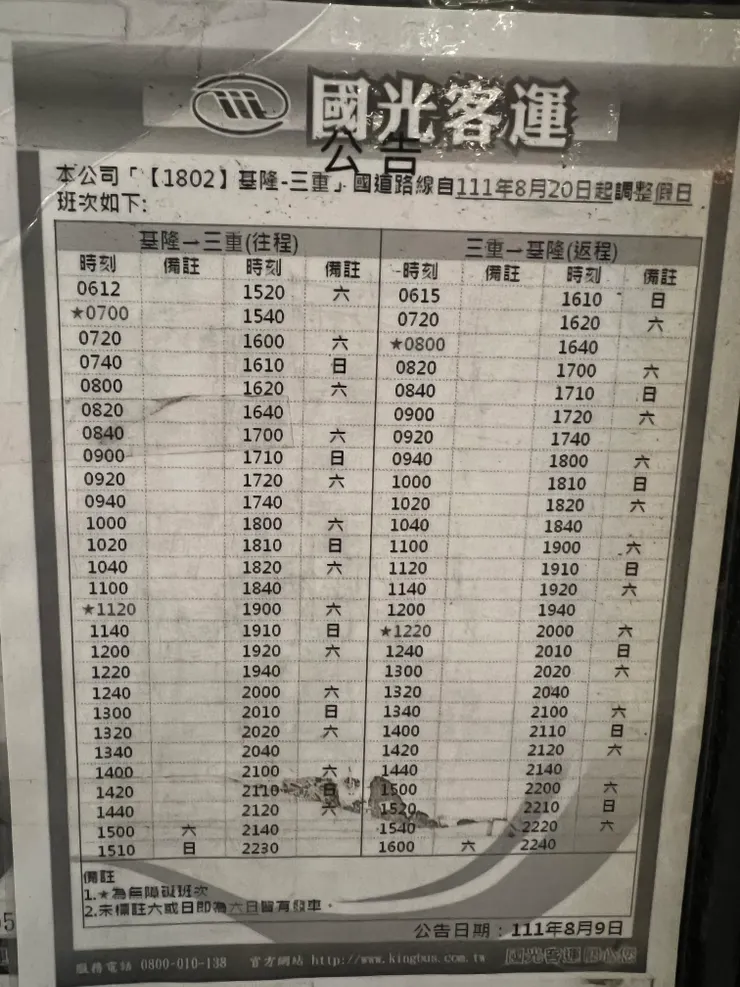 國光客運
公告
本公司「【1802】基隆-三重」國道路線自111年8月20日起調整假日
班次如下:
基隆→三重(往程) 三重→基隆(返程)
時刻 備註 時刻 備註 時刻 備註 時刻 備註
0612 1520 六 0615 1610 日
★0700 1540 0720 1620 六
0720 1600 六 ★0800 1640
0740 1610 日 0820 1700 六
0800 1620 六 0840 1710 日
0820 1640 0900 1720 六
0840 1700 六 0920 1740
0900 1710 日 0940 1800 六
0920 1720 六 1000 1810 日
0940 1740 1020 1820 六
1000 1800 六 1040 1840
1020 1810 日 1100 1900 六
1040 1820 六 1120 1910 日
1100 1840 1140 1920 六
★1120 1900 六 1200 1940
1140 1910 日 ★1220 2000 六
1200 1920 六 1240 2010 日
1220 1940 1300 2020 六
1240 2000 六 1320 2040
1300 2010 日 1340 2100 六
1320 2020 六 1400 2110 日
1340 2040 1420 2120 六
1400 2100 六 1440 2140
1420 2110 日 1500 2200 六
1440 2120 六 1520 2210 日
1500 六 2140 1540 2220 六
1510 日 2230 1600 六 2240
備註
1.★為無障礙班次
2.未標註六或日即為六日皆有發車。
公告日期：111年8月9日
服務電話 0800-010-138 官方網站 http://www.kingbus.com.tw 國光客運 關心您